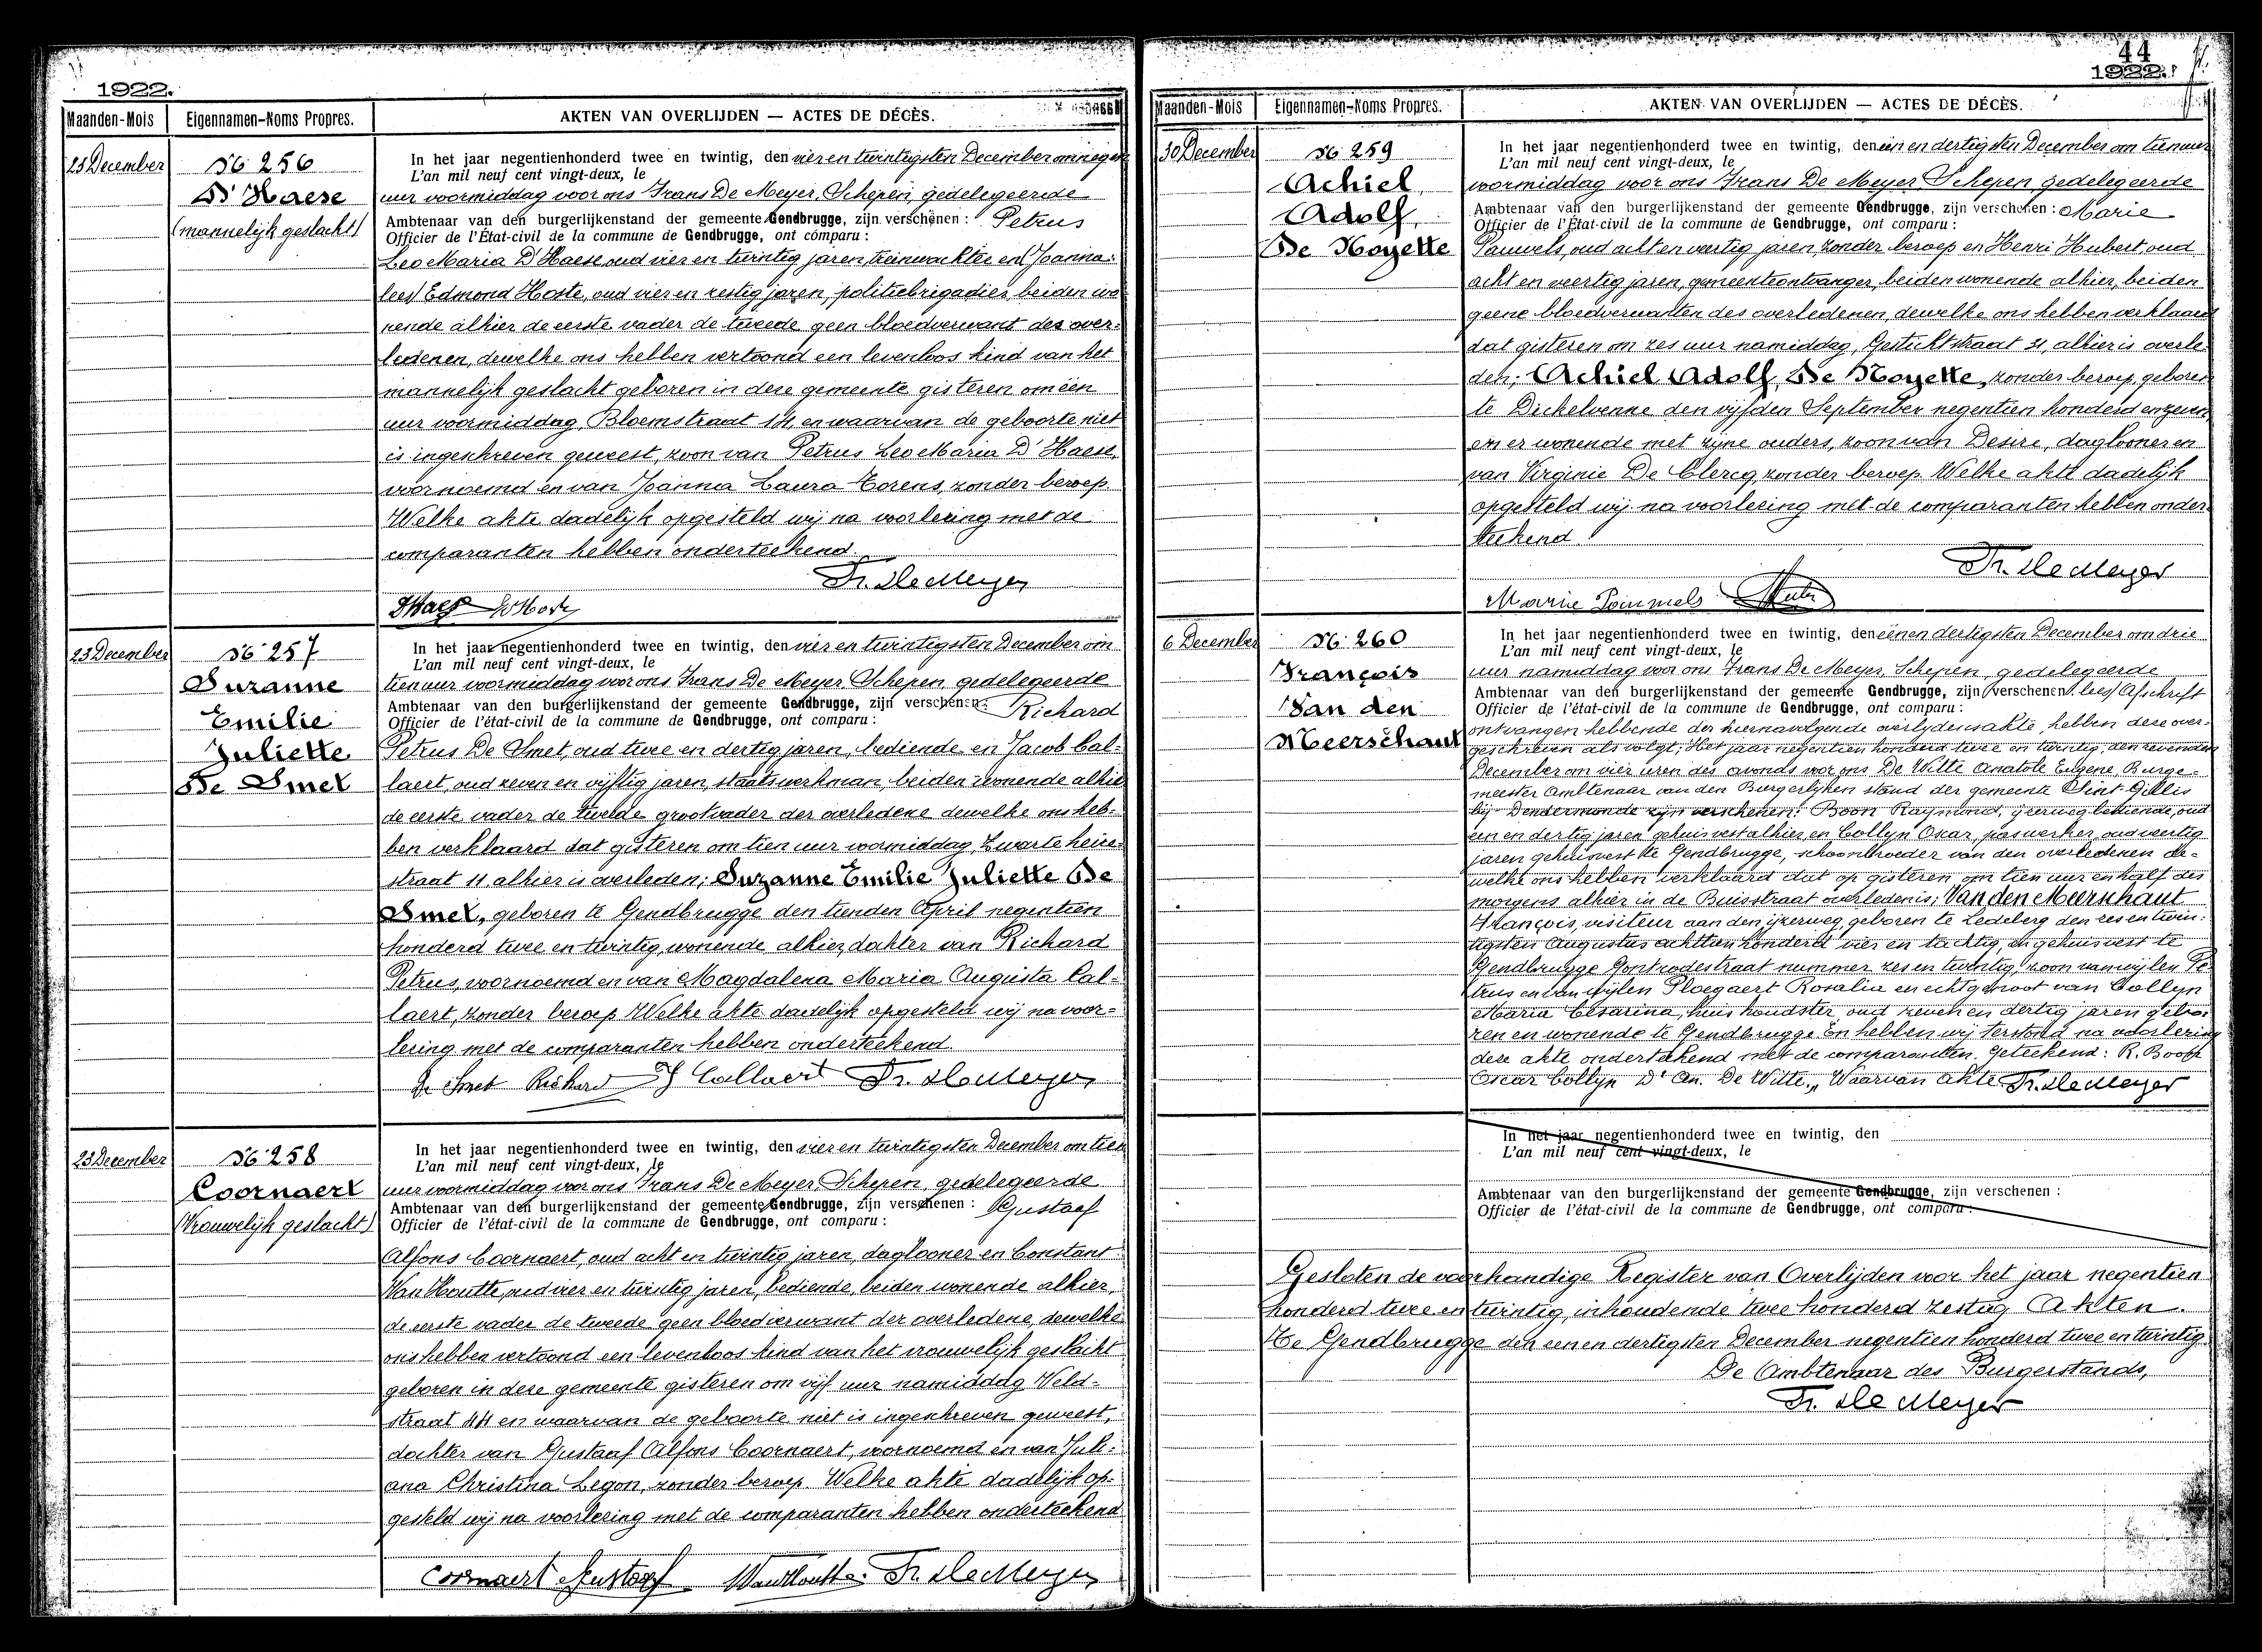 1922.
Maanden-Mois
Eigennamen-Noms Propres.
AKTEN VAN OVERLIJDEN — ACTES DE DÉCÈS.
23 December
No 256
D'Haese
(mannelijk geslacht)
In het jaar negentienhonderd twee en twintig, den vier en twintigsten December om negen
L'an mil neuf cent vingt-deux, le
uur voormiddag voor ons Frans De Meyer, Schepen, gedelegeerde
Ambtenaar van den burgerlijkenstand der gemeente Gendbrugge, zijn verschenen : Petrus
Officier de l'État-civil de la commune de Gendbrugge, ont comparu :
Leo Maria D'Haese, oud vier en twintig jaren, treinwachter en (Joanna:
lees) Edmond Hoste, oud vier en zestig jaren, politiebrigadier, beiden wo
nende alhier de eerste vader de tweede geen bloedverwant des over-
ledenen, dewelke ons hebben vertoond een levenloos kind van het
mannelijk geslacht geboren in deze gemeente gisteren om één
uur voormiddag, Bloemstraat 14, en waarvan de geboorte niet
is ingeschreven geweest, zoon van Petrus Leo Maria D'Haese,
voornoemd en van Joanna Laura Torens, zonder beroep.
Welke akte dadelijk opgesteld wij na voorlezing met de
comparanten hebben onderteekend.
Fr. De Meyer
DHaese EdHoste
23 December
No 257
Suzanne
Emilie
Juliette
De Smet
In het jaar negentienhonderd twee en twintig, den vier en twintigsten December om
L'an mil neuf cent vingt-deux, le
tien uur voormiddag voor ons Frans De Meyer Schepen, gedelegeerde
Ambtenaar van den burgerlijkenstand der gemeente Gendbrugge, zijn verschenen: Richard
Officier de l'état-civil de la commune de Gendbrugge, ont comparu :
Petrus De Smet, oud twee en dertig jaren, bediende en Jacob Cal-
laert, oud zeven en vijftig jaren, staatswerkman, beiden wonende alhier
de eerste vader de tweede grootvader der overledene dewelke ons heb-
ben verklaard dat gisteren om tien uur voormiddag, Zwarte heire-
straat 11, alhier is overleden; Suzanne Emilie Juliette De
Smet, geboren te Gendbrugge den tienden April negentien
honderd twee en twintig, wonende alhier, dochter van Richard
Petrus, voornoemd en van Magdalena Maria Augusta Cal-
laert, zonder beroep. Welke akte dadelijk opgesteld wij na voor-
lezing met de comparanten hebben onderteekend.
De Smet Richard J Callaert Fr. De Meyer
23 December
No 258
Coornaert
(Vrouwelijk geslacht)
In het jaar negentienhonderd twee en twintig, den vier en twintigsten December om tien
L'an mil neuf cent vingt-deux, le
uur voormiddag voor ons Frans De Meyer Schepen, gedelegeerde
Ambtenaar van den burgerlijkenstand der gemeente Gendbrugge, zijn verschenen : Gustaaf
Officier de l'état-civil de la commune de Gendbrugge, ont comparu :
Alfons Coornaert, oud acht en twintig jaren, daglooner en Constant
Van Houtte, oud vier en twintig jaren, bediende, beiden wonende alhier,
de eerste vader de tweede geen bloedverwant der overledene, dewelke
ons hebben vertoond een levenloos kind van het vrouwelijk geslacht
geboren in deze gemeente gisteren om vijf uur namiddag Veld-
straat 44 en waarvan de geboorte niet is ingeschreven geweest,
dochter van Gustaaf Alfons Coornaert, voornoemd en van Juli-
ana Christina Legon, zonder beroep. Welke akte dadelijk op-
gesteld wij na voorlezing met de comparanten hebben onderteekend
Coornaert Gustaaf VanHoutte Fr. De Meyer
44
1922.
Maanden-Mois
Eigennamen-Noms Propres.
AKTEN VAN OVERLIJDEN — ACTES DE DÉCÈS.
30 December
No 259
Achiel
Adolf,
De Noyette
In het jaar negentienhonderd twee en twintig, den één en dertigsten December om tien uur
L'an mil neuf cent vingt-deux, le
voormiddag voor ons Frans De Meyer Schepen gedelegeerde
Ambtenaar van den burgerlijkenstand der gemeente Gendbrugge, zijn verschenen : Marie
Officier de l'État-civil de la commune de Gendbrugge, ont comparu :
Pauwels, oud acht en veertig jaren, zonder beroep en Henri Hubert oud
acht en veertig jaren, gemeenteontvanger, beiden wonende alhier, beiden
geene bloedverwanten des overledenen, dewelke ons hebben verklaard
dat gisteren om zes uur namiddag, Gestichtstraat 21, alhier is overle-
den; Achiel Adolf, De Noyette, zonder beroep, geboren
te Dickelvenne den vijfden September negentien honderd en zeven,
en er wonende met zijne ouders, zoon van Desiré, daglooner en
van Virginie De Clercq, zonder beroep. Welke akte dadelijk
opgesteld wij na voorlezing met de comparanten hebben onder-
teekend
Fr. De Meyer
Marie Pauwels Hubert
6 December
No 260
François
Van den
Meerschaut
In het jaar negentienhonderd twee en twintig, den éénen dertigsten December om drie
L'an mil neuf cent vingt-deux, le
uur namiddag voor ons Frans De Meyer, Schepen, gedelegeerde
Ambtenaar van den burgerlijkenstand der gemeente Gendbrugge, zijn verschenen (lees) Afschrift
Officier de l'État-civil de la commune de Gendbrugge, ont comparu :
ontvangen hebbende der hiernavolgende overlijdensakte, hebben deze over-
geschreven als volgt; Het jaar negentien honderd twee en twintig, den zevenden
December om vier uren des avonds voor ons De Witte Anatole Eugene, Burge-
meester Ambtenaar van den Burgerlijken stand der gemeente Sint-Gillis
bij Dendermonde zijn verschenen: Boon Raymond, ijzerwegbediende, oud
een en dertig jaren gehuisvest alhier, en Collyn Oscar, paswerker, oud veertig
jaren gehuisvest te Gendbrugge, schoonbroeder van den overledenen de-
welke ons hebben verklaard dat op gisteren om tien uur en half des
morgens alhier in de Buisstraat overleden is; Van den Meerschaut
François, visiteur aan den ijzerweg, geboren te Ledeberg den zes en twin-
tigsten Augustus achttien honderd vier en tachtig, en gehuisvest te
Gendbrugge Gontrodestraat nummer zes en twintig, zoon van wijlen Pe-
trus en van wijlen Ploegaert Rosalia en echtgenoot van Collyn
Maria Cesarina, huishoudster, oud zeven en dertig jaren gebo-
ren en wonende te Gendbrugge. En hebben wij terstond na voorlezing
deze akte onderteekend met de comparanten. Geteekend: R. Boon
Oscar Collyn Dr An. De Witte." Waarvan Akte. Fr. De Meyer
In het jaar negentienhonderd twee en twintig, den
L'an mil neuf cent vingt-deux, le
Ambtenaar van den burgerlijkenstand der gemeente Gendbrugge, zijn verschenen :
Officier de l'État-civil de la commune de Gendbrugge, ont comparu :
Gesloten de voorhandige Register van Overlijden voor het jaar negentien
honderd twee en twintig, inhoudende twee honderd zestig Akten.
Te Gendbrugge den eenen dertigsten December negentien honderd twee en twintig.
De Ambtenaar des Burgerstands,
Fr. De Meyer